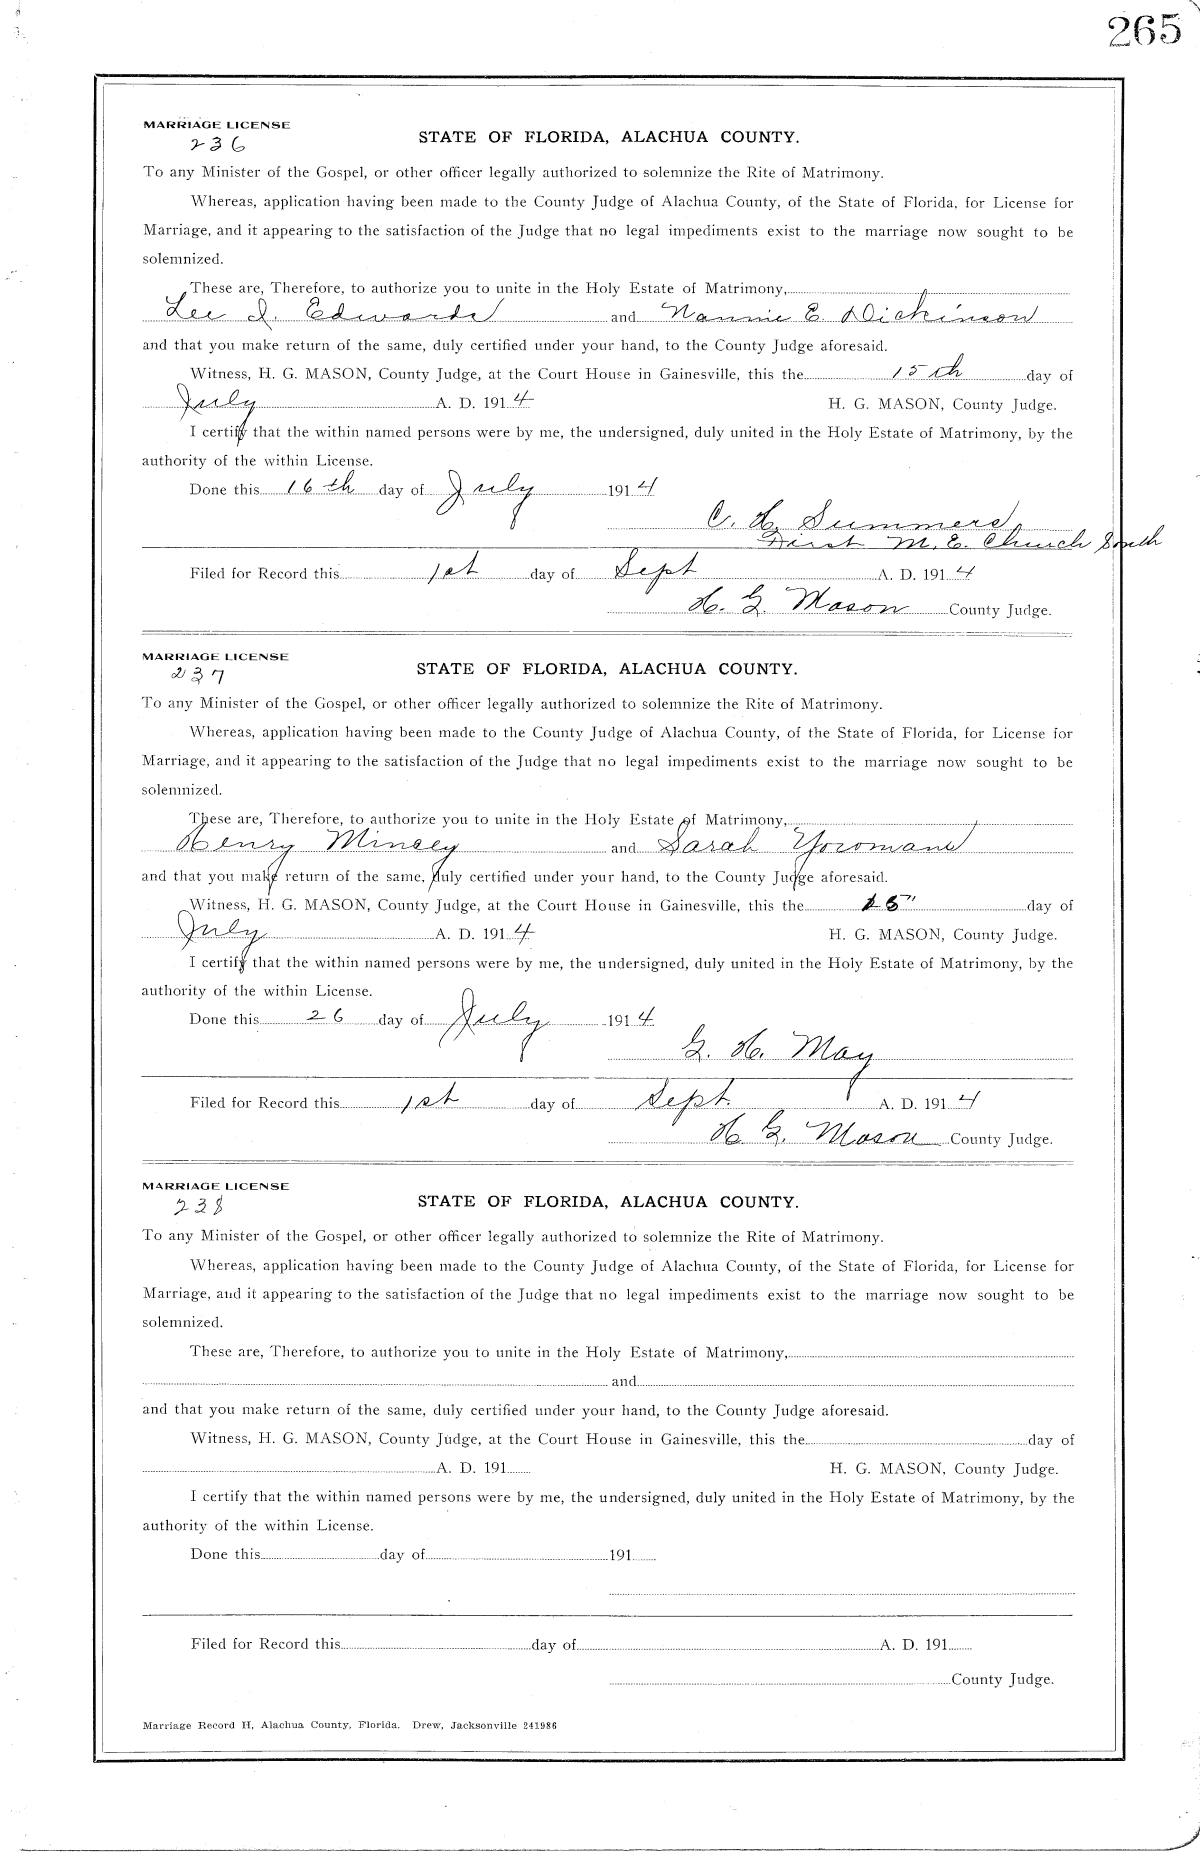 265
MARRIAGE LICENSE
236
STATE OF FLORIDA, ALACHUA COUNTY.
To any Minister of the Gospel, or other officer legally authorized to solemnize the Rite of Matrimony.
Whereas, application having been made to the County Judge of Alachua County, of the State of Florida, for License for
Marriage, and it appearing to the satisfaction of the Judge that no legal impediments exist to the marriage now sought to be
solemnized.
These are, Therefore, to authorize you to unite in the Holy Estate of Matrimony,
Lee J. Edwards and Nannie E. Dickinson
and that you make return of the same, duly certified under your hand, to the County Judge aforesaid.
Witness, H. G. MASON, County Judge, at the Court House in Gainesville, this the 15th day of
July A. D. 1914 H. G. MASON, County Judge.
I certify that the within named persons were by me, the undersigned, duly united in the Holy Estate of Matrimony, by the
authority of the within License.
Done this 16th day of July 1914
C. H. Summers
First M. E. Church South
Filed for Record this 1st day of Sept A. D. 1914
H. G. Mason County Judge.
MARRIAGE LICENSE
237
STATE OF FLORIDA, ALACHUA COUNTY.
To any Minister of the Gospel, or other officer legally authorized to solemnize the Rite of Matrimony.
Whereas, application having been made to the County Judge of Alachua County, of the State of Florida, for License for
Marriage, and it appearing to the satisfaction of the Judge that no legal impediments exist to the marriage now sought to be
solemnized.
These are, Therefore, to authorize you to unite in the Holy Estate of Matrimony,
Henry Mincey and Sarah Yoromans
and that you make return of the same, duly certified under your hand, to the County Judge aforesaid.
Witness, H. G. MASON, County Judge, at the Court House in Gainesville, this the day of
July A. D. 1914 H. G. MASON, County Judge.
I certify that the within named persons were by me, the undersigned, duly united in the Holy Estate of Matrimony, by the
authority of the within License.
Done this 26 day of July 1914
G. H. May
Filed for Record this 1st day of Sept. A. D. 1914
H. G. Mason County Judge.
MARRIAGE LICENSE
238
STATE OF FLORIDA, ALACHUA COUNTY.
To any Minister of the Gospel, or other officer legally authorized to solemnize the Rite of Matrimony.
Whereas, application having been made to the County Judge of Alachua County, of the State of Florida, for License for
Marriage, and it appearing to the satisfaction of the Judge that no legal impediments exist to the marriage now sought to be
solemnized.
These are, Therefore, to authorize you to unite in the Holy Estate of Matrimony,
and
and that you make return of the same, duly certified under your hand, to the County Judge aforesaid.
Witness, H. G. MASON, County Judge, at the Court House in Gainesville, this the day of
A. D. 191 H. G. MASON, County Judge.
I certify that the within named persons were by me, the undersigned, duly united in the Holy Estate of Matrimony, by the
authority of the within License.
Done this day of 191
Filed for Record this day of A. D. 191
County Judge.
Marriage Record H, Alachua County, Florida. Drew, Jacksonville 241986